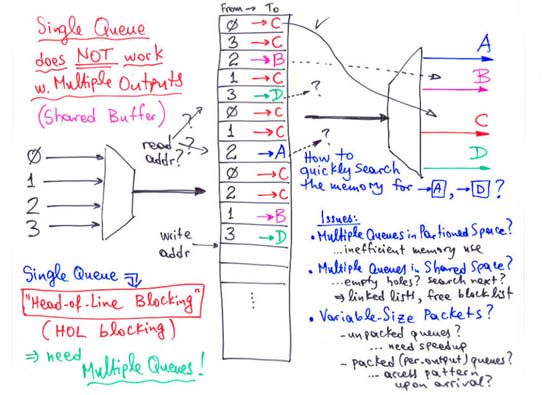 Single Queue
does NOT work
w. Multiple Outputs
(Shared Buffer)
From → To
0 → C
3 → C
2 → B
1 → C
3 → D
0 → C
1 → C
2 → A
0 → C
2 → C
1 → B
3 → D
?
?
?
read
addr?
?
write
addr
0
1
2
3
A
B
C
D
How to
quickly search
the memory for → A, → D ?
Single Queue ⇒
"Head-of-Line Blocking"
(HOL blocking)
⇒ need
Multiple Queues!
Issues:
• Multiple Queues in Partioned Space?
...inefficient memory use
• Multiple Queues in Shared Space?
...empty holes? search next?
⇒ linked lists, free block list
• Variable-Size Packets?
- unpacked queues?
... need speedup
- packed (per-output) queues?
... access pattern
upon arrival?